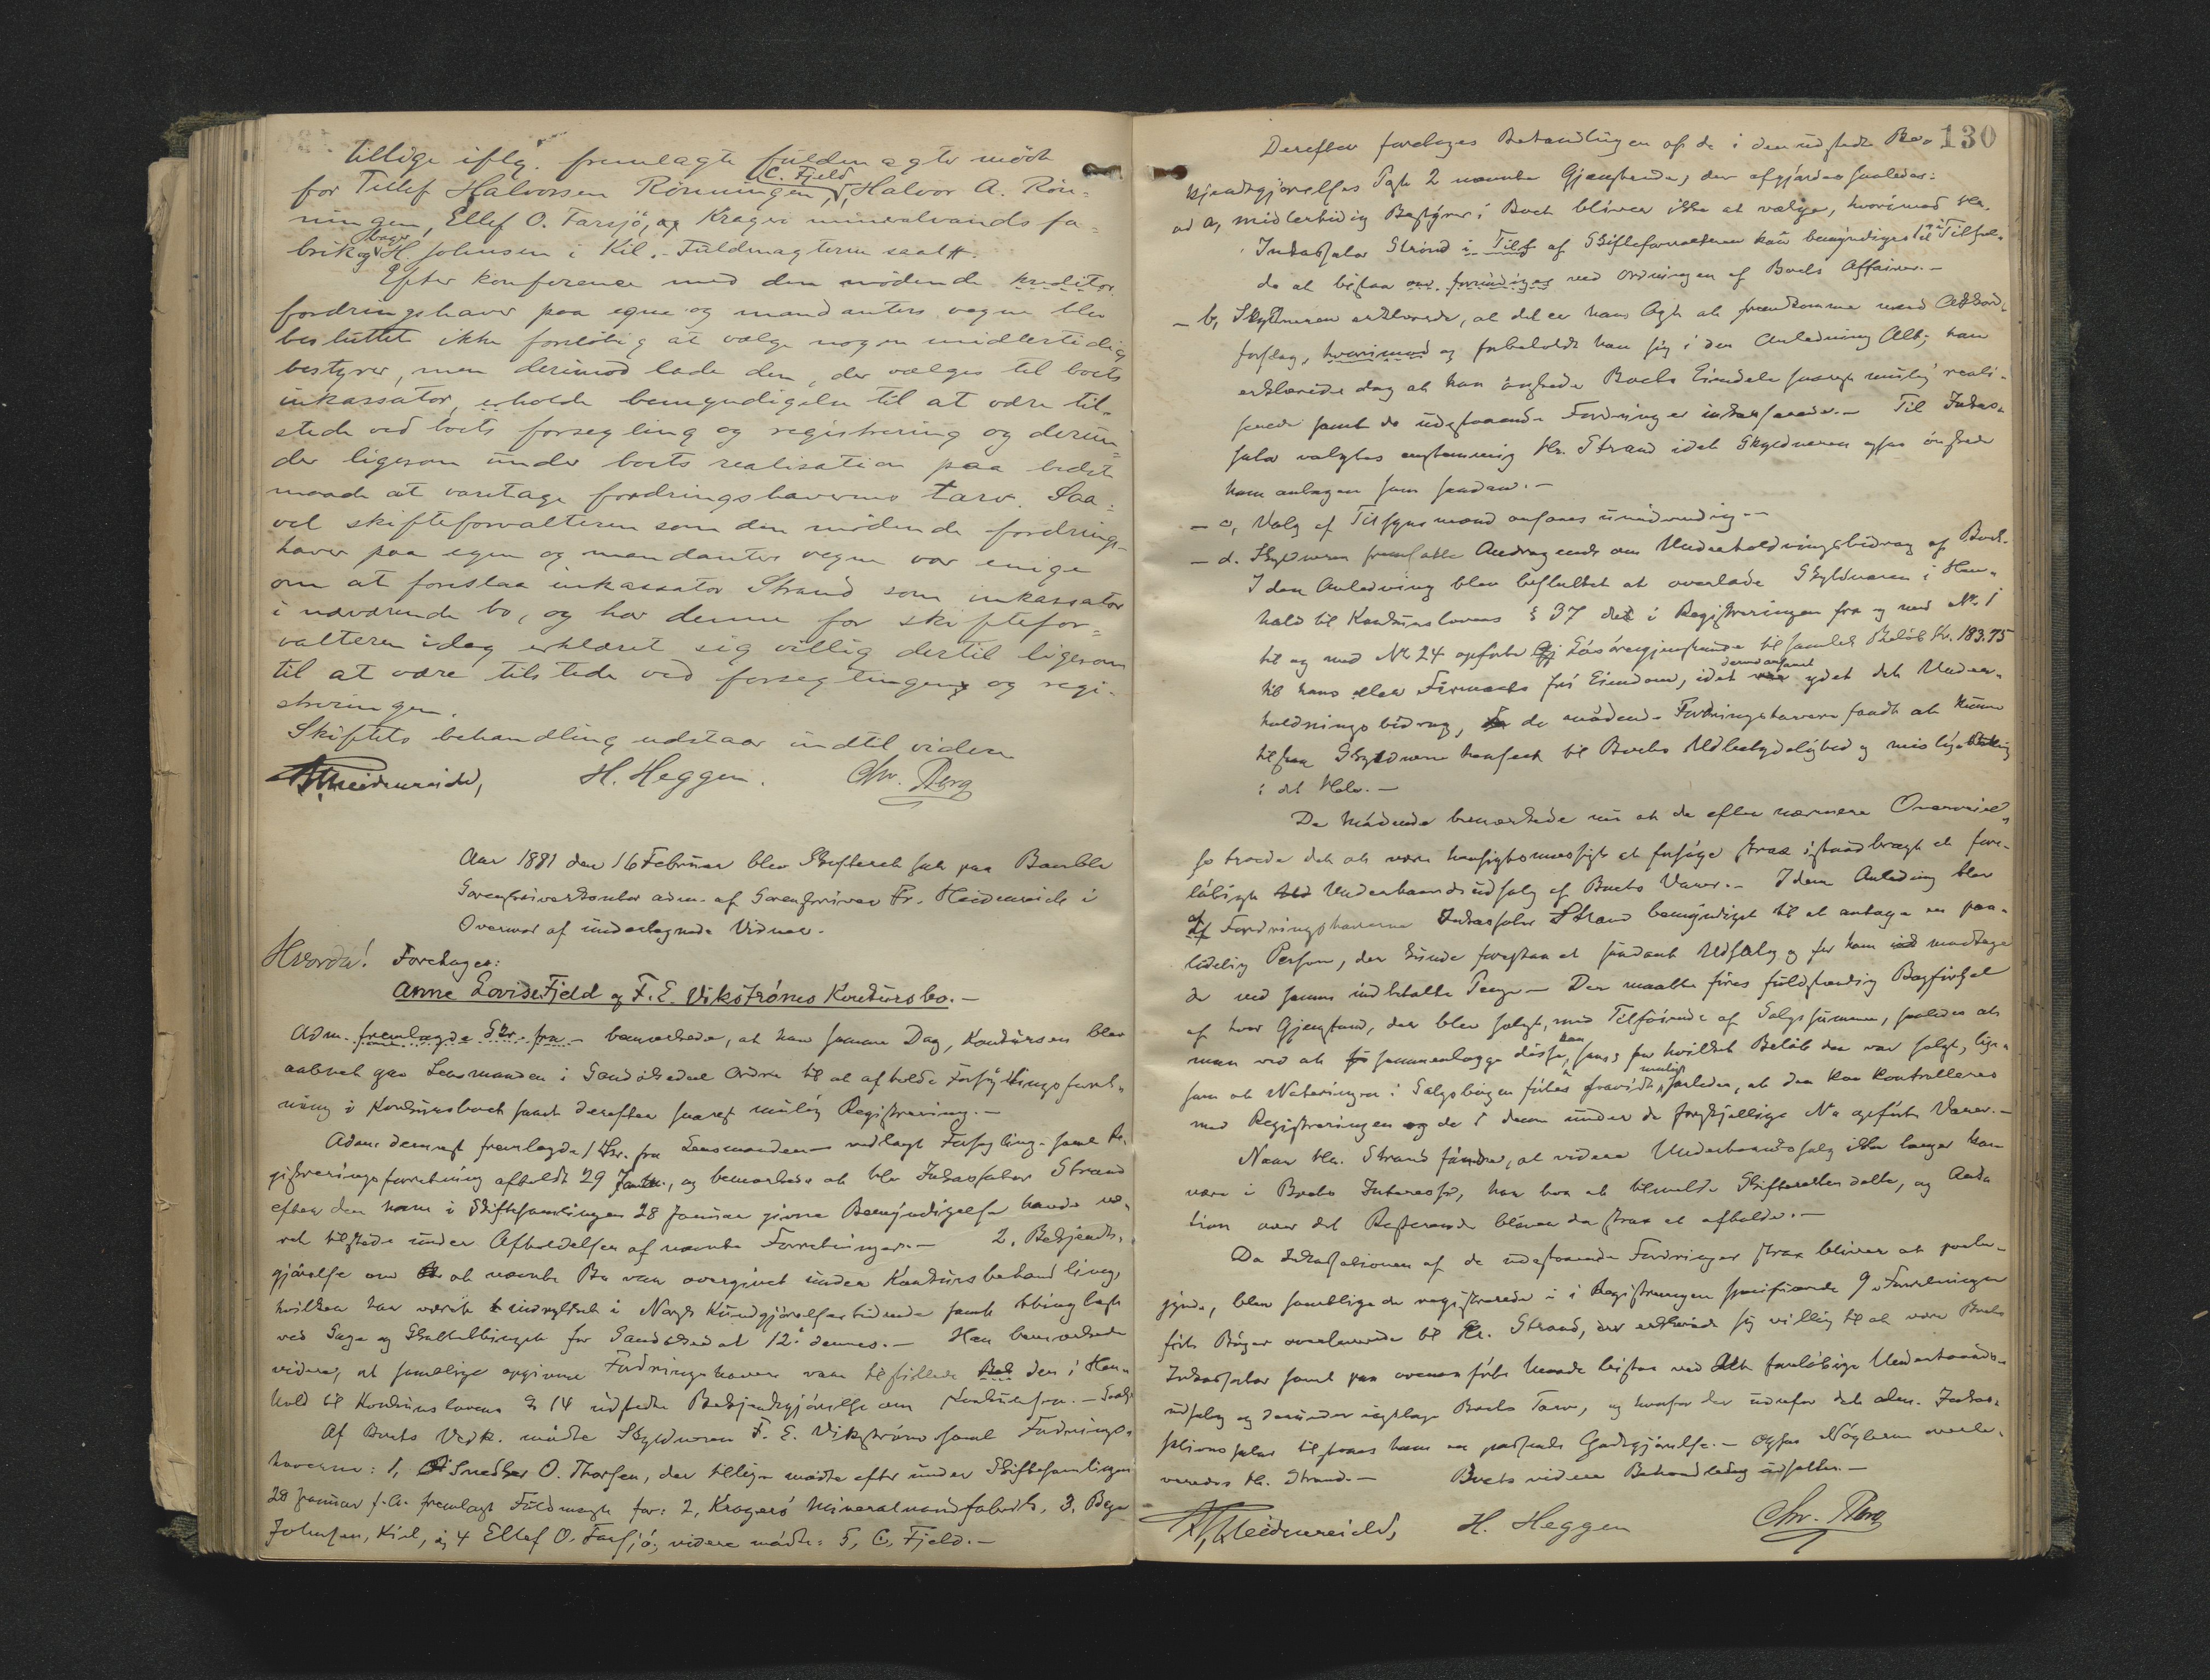 tillige ifølg. fremlagte fuldmagter møtte
C. Fjeld
for Tellef Halvorsen Rønningen, Halvor A. Røn-
ningen, Ellef O. Farsjø, og Kragerø mineralvands fa-
Bager
brik og H. Johnsen i Kil. - Fuldmagterne saal.
Efter konference med den mødende kreditor
fordringshaver paa egne og mandanters vegne blev
besluttet ikke foreløbig at vælge nogen midlertidig
bestyrer, men derimod lade den, der vælges til boets
inkassator, erholde bemyndigelse til at være til-
stede ved boets forsegling og registrering og derun-
der ligesom under boets realisation paa bedste
maade at varetage fordringshavernes tarv. Saa-
vel skifteforvalteren som den mødende fordrings-
haver paa egen og mandanters vegne var enige
om at foreslaa inkassator Strand som inkassator
i nærværende bo, og har denne for skiftefor-
valteren idag erklæret sig villig dertil ligesom
til at være tilstede ved forseglingen og regi-
streringen.
Skiftets behandling udstaar indtil videre
Fr. Heidenreich, H. Heggen. Chr. Berg
Aar 1881 den 16 Februar blev Skifteret sat paa Bamble
Sorenskriverkontor adm. af Sorenskriver Fr. Heidenreich i
Overvær af undertegnede Vidner.
Hvorda! Foretages:
Anne Lovise Fjeld og F. E. Vikstrøms Konkursbo. -
Adm. fremlagde Skr. fra - bemærkede, at han samme Dag, Konkursen blev
aabnet gav Lensmanden i Sandøkedal Ordre til at afholde Forseglingsforret-
ning i Konkursboet samt derefter snarest mulig Registrering. -
Adm. dernæst fremlagde 1 Skr. fra Lensmanden vedlagt Forsegling- samt Re-
gistreringsforretning afholdt 29 Januar, og bemærkede at Hr Inkassator Strand
efter den ham i Skiftesamlingen 28 Januar givne Bemyndigelse havde væ-
ret tilstede under Afholdelsen af nævnte Forretninger. - 2, Bekjendt-
gjørelse om at nævnte Bo var overgivet under Konkursbehandling,
hvilken har været indrykket i Norsk Kundgjørelsestidende samt thinglæst
ved Sage og Skattethinget for Sandøkedal 12 dennes. - Han bemærkede
videre, at samtlige opgivne Fordringshavere vare tilstillede den i Hen-
hold til Konkurslovens § 14 udstedte Bekjendtgjørelse om Konkursen. - Saal.
Af Boets Vedk. mødte Skyldneren F. E. Vikstrøm samt Fordrings-
haverne: 1, Snedker O. Thorsen, der tillige mødte efter under Skiftesamlingen
28 Januar f. A. fremlagt Fuldmagt for: 2, Kragerø Mineralvandfabrik, 3, Bager
Johnsen, Kil, og 4 Ellef O. Farsjø; videre mødte: 5, C. Fjeld. -
130
Derefter foretages Behandlingen af de i den udstedte Be-
kjendtgjørelses Post 2 nævnte Gjenstande, der afgjørdes saaledes:
ad a, midlertidig Bestyrer i Boet bliver ikke at vælge, hvorimod Hr.
Inkassator Strand af Skifteforvalteren kan bemyndiges til i Tilfæl-
de at bistaa ved Ordningen af Boets Affairer. -
- b, Skyldneren erklærede, at det er hans Agt at fremkomme med Akkord-
forslag, hvorimod og forbeholdt han sig i den Anledning Alt; han
erklærede dog at han ønskede Boets Eiendele snarest mulig reali-
serede samt de udestaaende Fordringer inkasserede. - Til Inkas-
sator valgtes enstemmig Hr. Strand idet Skyldneren ogsaa ønskede
ham antagen som saadan. -
- c, Valg af Tilsynsmænd ansaaes unødvendig -
- d. Skyldneren fremsatte Andragende om Underholdningsbidrag af Boet.
I den Anledning blev besluttet at overlade Skyldneren i Hen-
hold til Konkurslovens § 37 de i Registreringen fra og med No 1
til og med No 24 opførte Løsøregjenstande til samlet Beløb Kr. 183.75
dermed ansaaet
til hans eller Firmaets fri Eiendom, idet ydet det Under-
holdningsbidrag, de mødende Fordringshavere fandt at kunne
tilstaa Skyldneren henseet til Boets Ubetydelighed og mislige Stilling
i det Hele. -
De Mødende bemærkede nu at de efter nærmere Overveiel-
se troede det at være hensigtsmæssigt at forsøge strax istandbragt et fore-
løbigt Underhaandsudsalg af Boets Varer. - I den Anledning blev
af Fordringshaverne Inkassator Strand bemyndiget til at antage en paa-
lidelig Person, der kunde forestaa et saadant Udsalg og for ham modtage
de ved samme indbetalte Penge - Der maatte føres fuldstændig Bogførsel
af hver Gjenstand, der blev solgt, med Tilføiende af Salgssummen, saaledes at
kan
man ved at sammenlægge disse, sees for hvilket Beløb der var solgt, lige-
muligt
som at Noteringen i Salgsbogen føres saavidt saaledes, at den kan kontrolleres
med Registreringen og de i denne under de forskjellige No opførte Varer. -
Naar Hr. Strand finder, at videre Underhaandssalg ikke længer kan
være i Boets Interesse, har han at tilmelde Skifteretten dette, og Auk-
tion over det Resterende bliver da strax at afholde. -
Da Inkassationen af de udestaaende Fordringer strax bliver at paabe-
gynde, blev samtlige de registrerede i Registreringen specificerede 9 Forretningen
førte Bøger overleverede til Hr. Strand, der erklærede sig villig til at være Boets
Inkassator samt paa ovenanførte Maade bistaa ved det foreløbige Underhaands-
udsalg og derunder iagttage Boets Tarv, og hvorfor der udenfor det alm. Inkas-
sationssalær tilstaaes ham en passende Godtgjørelse. - Ogsaa Nøglerne overle-
veredes Hr. Strand. - Boets videre Behandling udsattes. -
Fr. Heidenreich, H. Heggen Chr. Berg